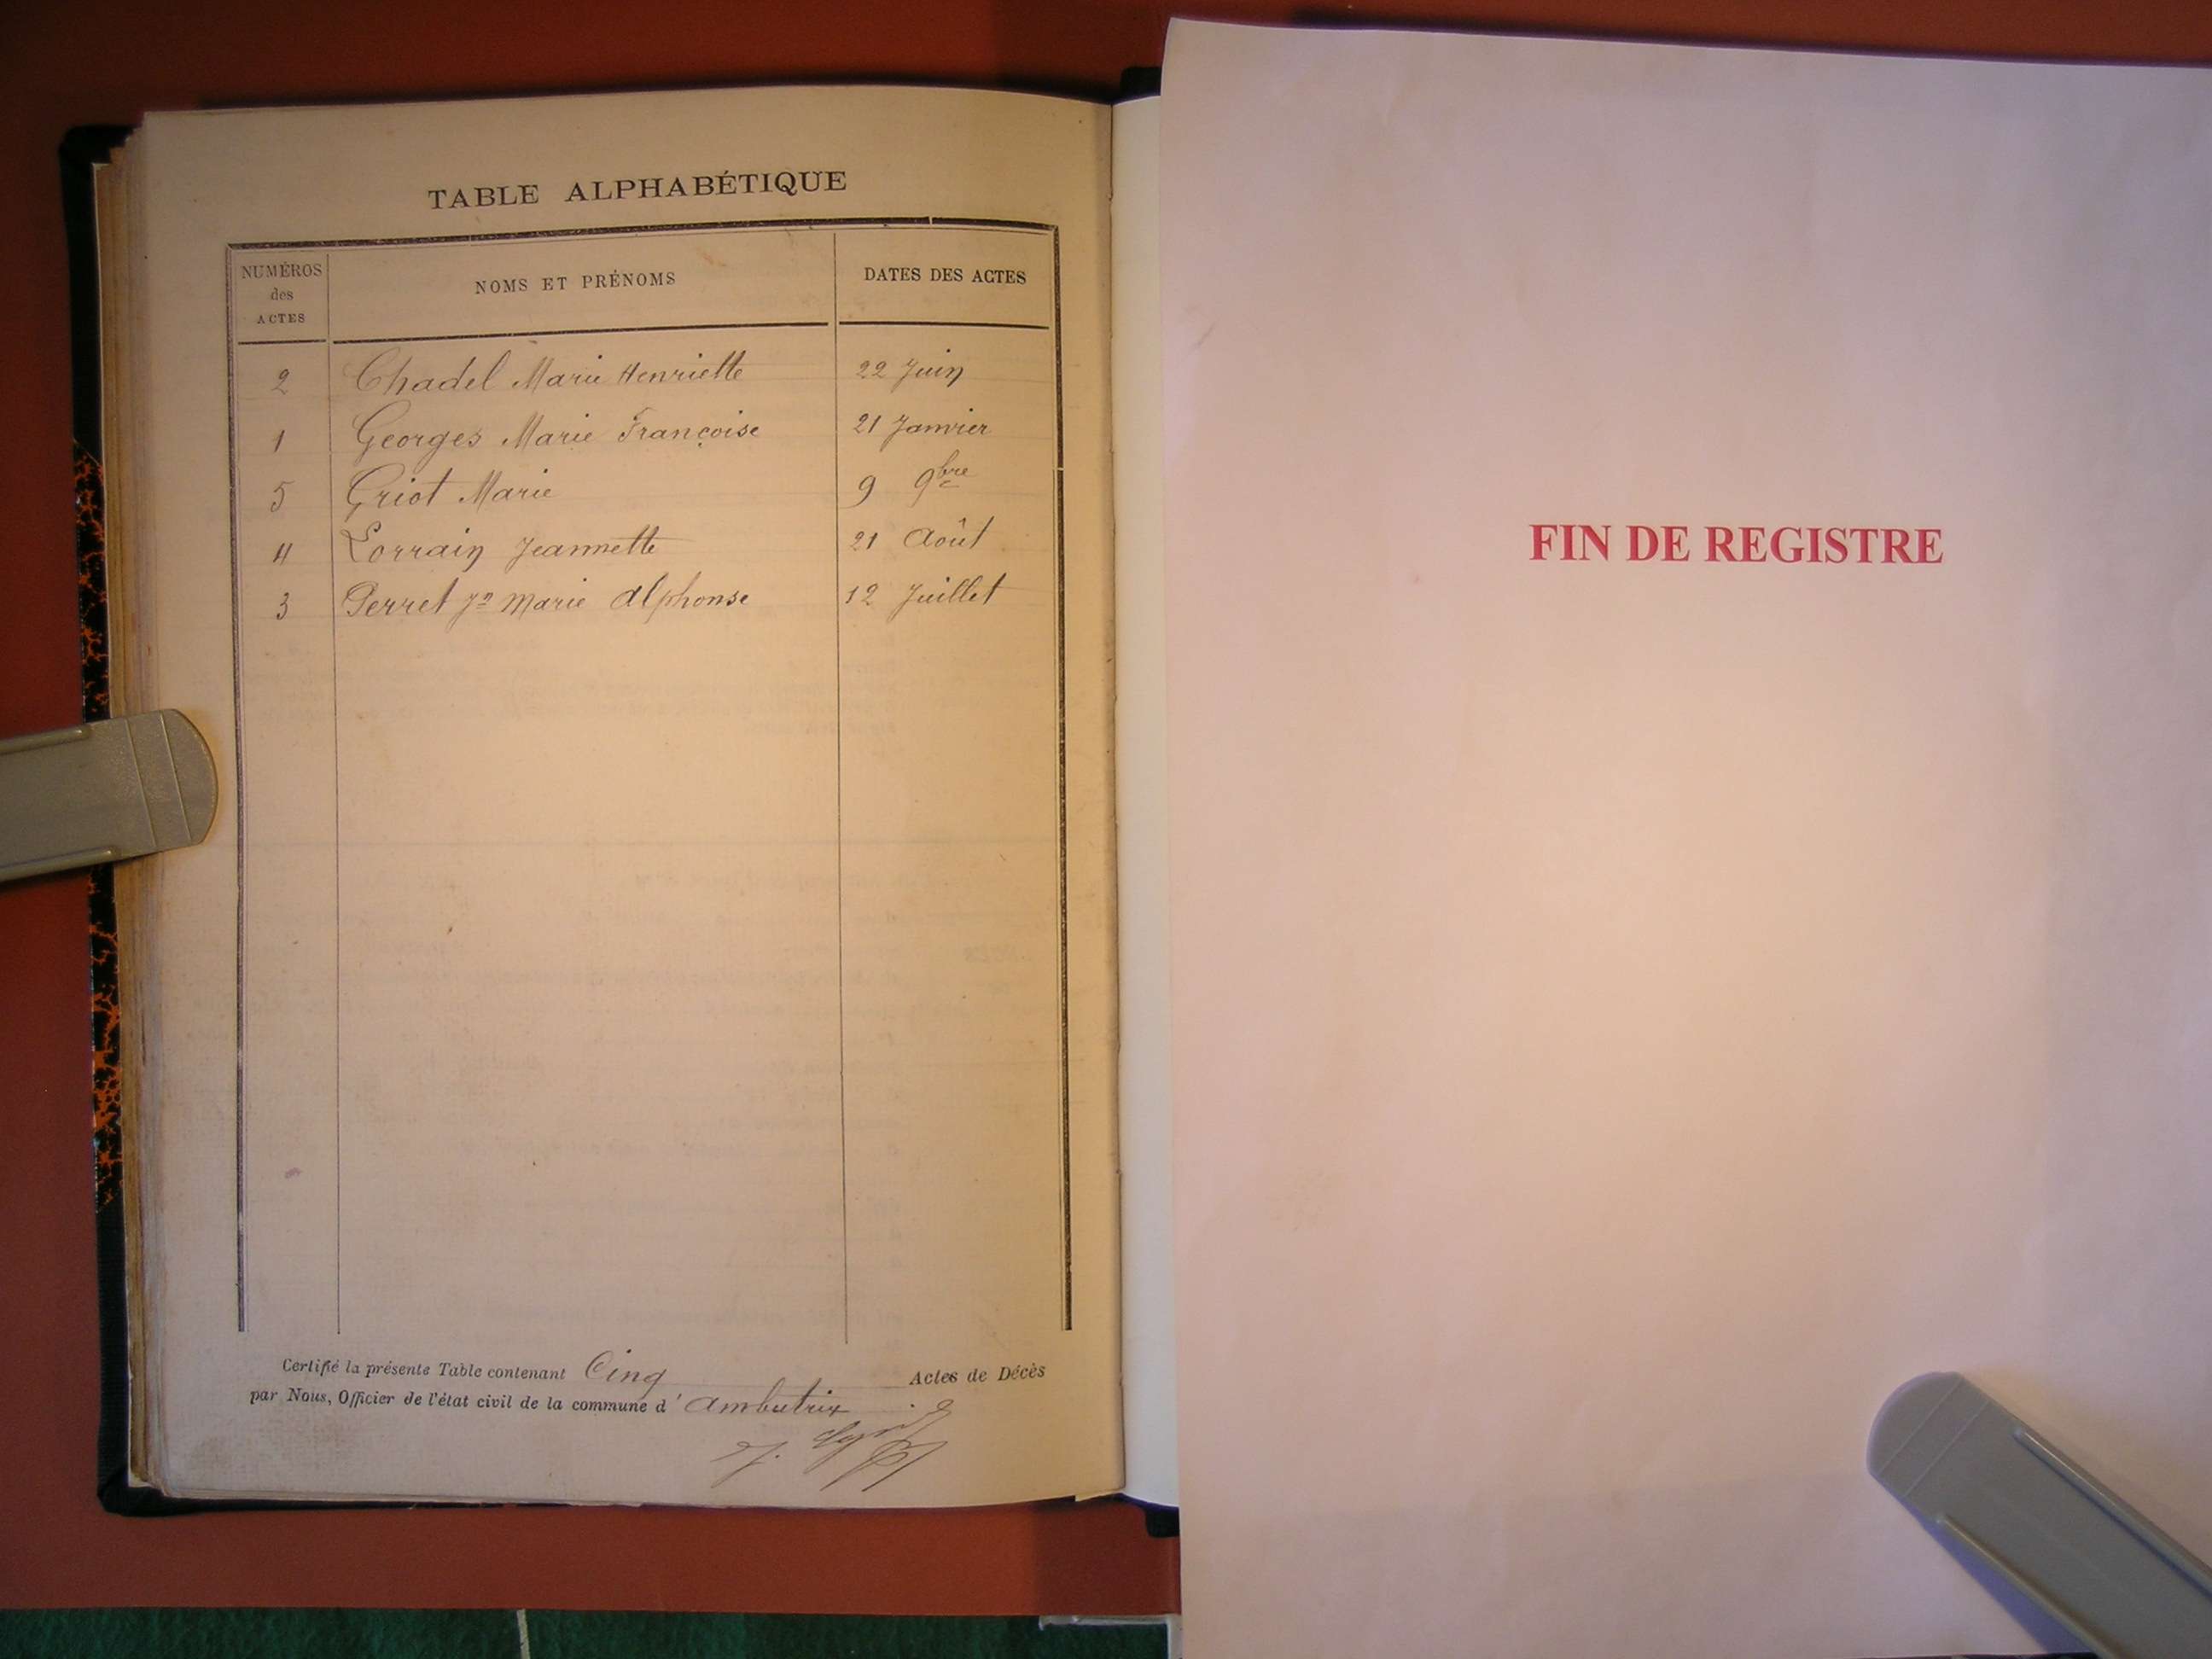 TABLE ALPHABÉTIQUE
NUMÉROS des ACTES NOMS ET PRÉNOMS DATES DES ACTES
2 Chadel Marie Henriette 22 Juin
1 Georges Marie Françoise 21 Janvier
5 Griot Marie 9 9bre
4 Lorrain Jeannette 21 Août
3 Perret Jn Marie Alphonse 12 Juillet
Certifié la présente Table contenant Cinq Actes de Décès
par Nous, Officier de l'état civil de la commune d'Ambutrix
FIN DE REGISTRE